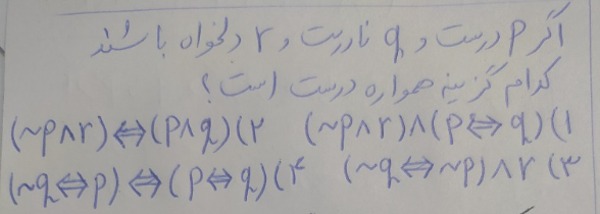 اگر p درست و q نادرست و r دلخواه باشند
کدام گزینه همواره درست است؟
(~p∧r)∧(p⇔q) (۱ (~p∧r)⇔(p∧q) (۲
(~q⇔~p)∧r (۳ (~q⇔p)⇔(p⇔q) (۴